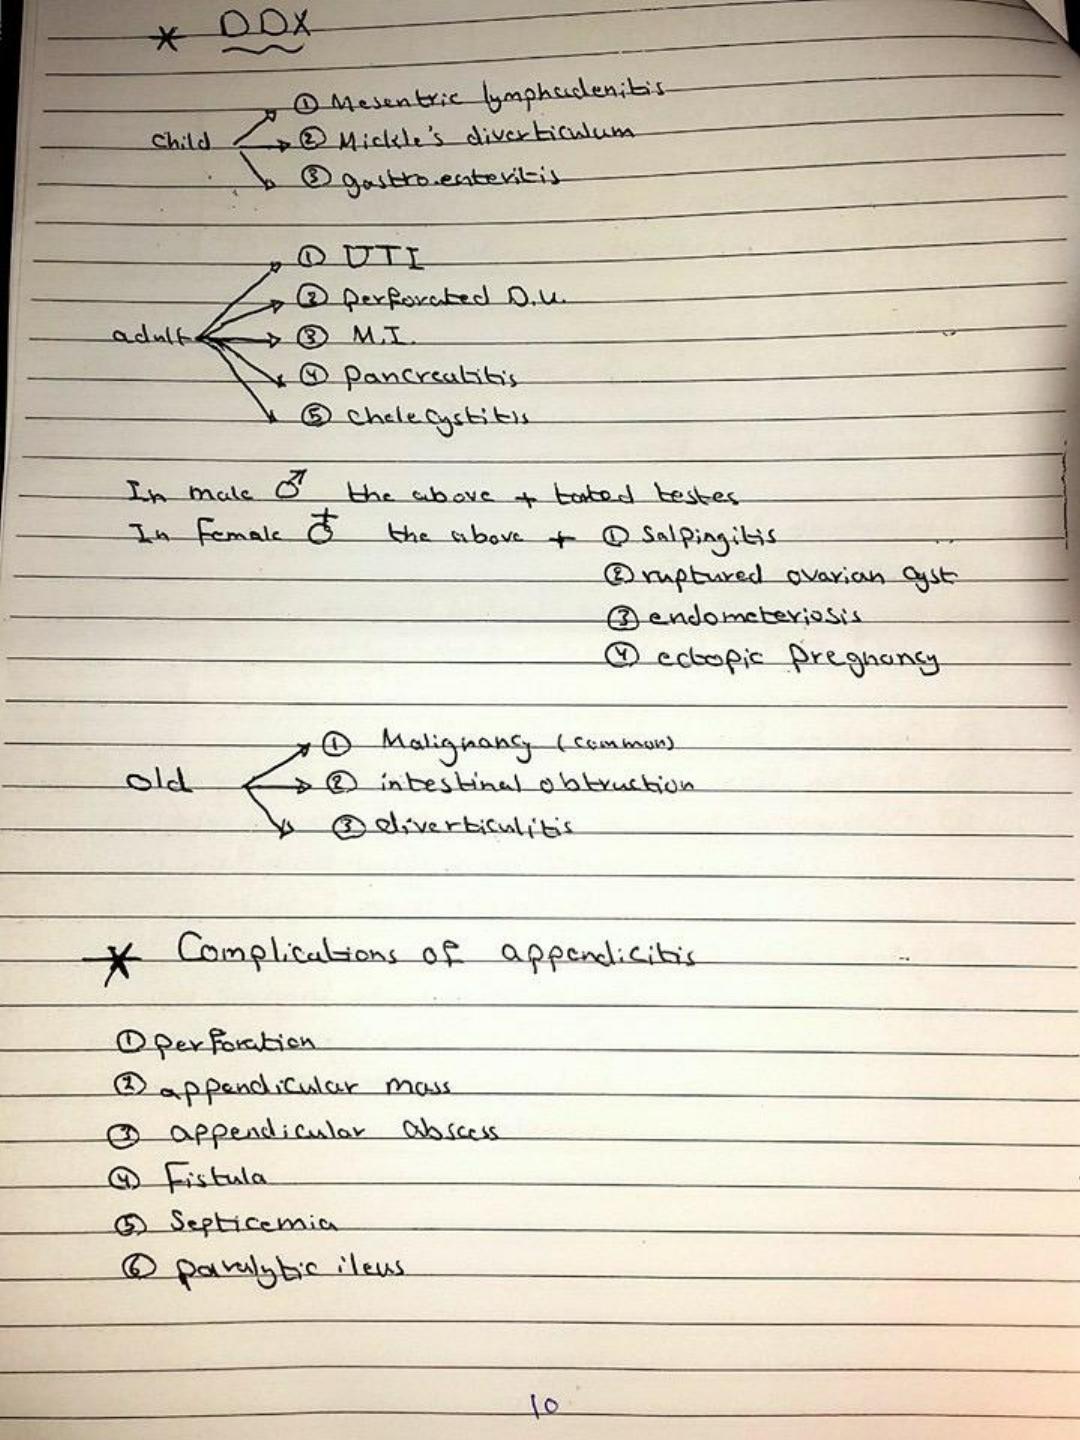 * DDX
① Mesentric lymphadenitis
Child → ② Mickle's diverticulum
③ gastro.enteritis
① UTI
② perforated D.U.
adult → ③ M.I.
④ Pancreatitis
⑤ Cholecystitis
In male ♂ the above + testes
In Female ♀ the above + ① Salpingitis
② ruptured ovarian cyst
③ endometeriosis
④ ectopic pregnancy
① Malignancy (common)
old → ② intestinal obtruction
③ diverticulitis
* Complications of appendicitis
① perforation
② appendicular mass
③ appendicular abscess
④ Fistula
⑤ Septicemia
⑥ paralytic ileus
10